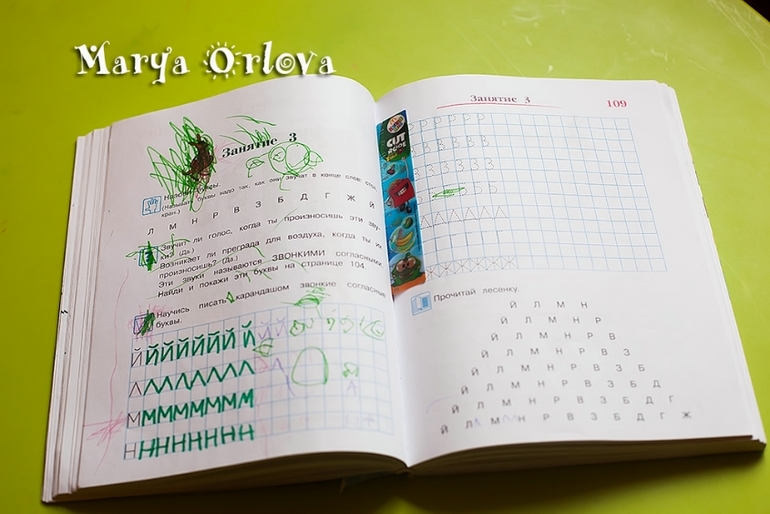 Marya Orlova
Занятие 3
Назови буквы.
(Называть буквы надо так, как они звучат в конце слов: стол,
кран.)
Л М Н Р В З Б Д Г Ж Й
Звучит ли голос, когда ты произносишь эти зву-
ки? (Да.)
Возникает ли преграда для воздуха, когда ты их
произносишь? (Да.)
Эти звуки называются ЗВОНКИМИ согласными.
Найди и покажи эти буквы на странице 104.
Научись писать карандашом звонкие согласные
буквы.
Й Й Й Й Й Й Й Й
Л Л Л Л Л Л Л Л
М М М М М М М М
Н Н Н Н Н Н Н Н
Занятие 3 109
CUT
Прочитай лесенку.
Й Л М Н
Й Л М Н Р
Й Л М Н Р В
Й Л М Н Р В З
Й Л М Н Р В З Б
Й Л М Н Р В З Б Д
Й Л М Н Р В З Б Д Г
Й Л М Н Р В З Б Д Г Ж